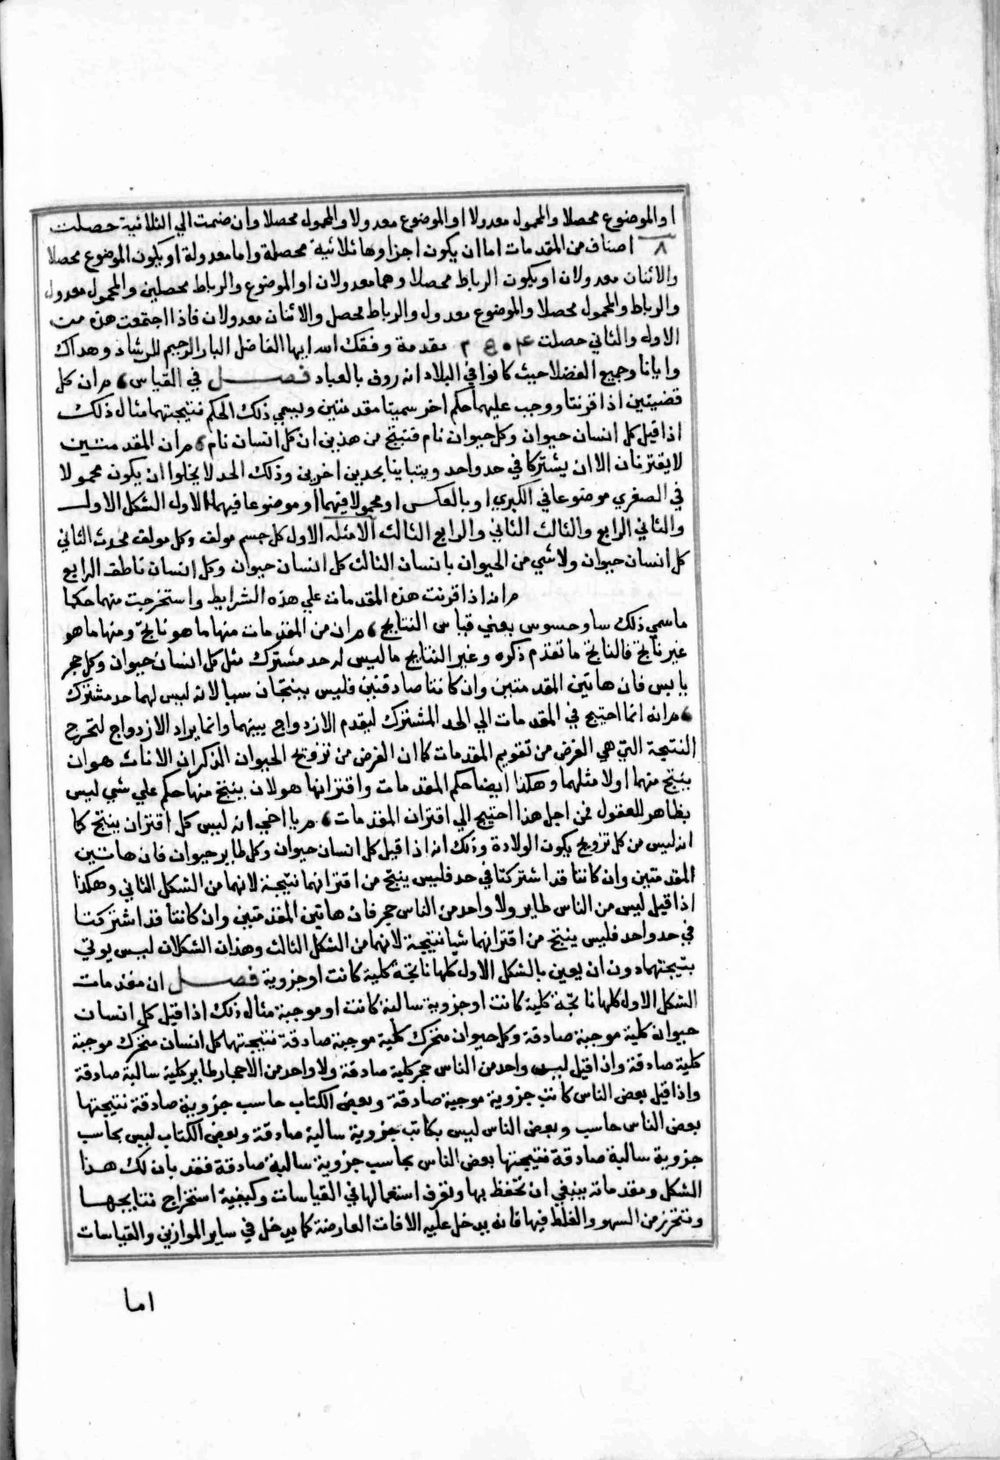 او الموضوع محصلا والمحمول معدولا او الموضوع معدولا والمحمول محصلا وان ضمت الي الثلاثية حصلت
٨ اصناف من المقدمات اما ان يكون اجزاوها ثلاثية محصلة واما معدولة او يكون الموضوع محصلا
والاثنان معدولان او يكون الرباط محصلا وهما معدولان او الموضوع والرباط محصلين والمحمول معدول
والرباط والمحمول محصلا والموضوع معدول والرباط محصل والاثنان معدولان فاذا اجتمعت هذه مع
الاوله والثاني حصلت مقدمة وفقك الله ايها الفاضل البار الرحيم للرشاد وهداك
وايانا وجميع الفضلا حيث كانوا في البلاد انه روف بالعباد فصل في القياس، مر ان كل
قضيتين اذا قرنتا ووجب عليهما حكم اخر سميتا مقدمتين وسمي ذلك الحكم نتيجتهما مثال ذلك
اذا قيل كل انسان حيوان وكل حيوان نام فتنتج من هذين ان كل انسان نام، مر ان المقدمتين
لا يقترنان الا ان يشتركا في حد واحد ويتباينا بحدين اخرين وذلك الحد لا يخلوا ان يكون محمولا
في الصغري موضوعا في الكبري او بالعكس او محمولا فيهما او موضوعا فيهما الاول الشكل الاول
والثاني الرابع والثالث الثاني والرابع الثالث الامثلة الاول كل جسم مولف وكل مولف محدث الثاني
كل انسان حيوان ولا شي من الحيوان بانسان الثالث كل انسان حيوان وكل انسان ناطق الرابع
مر انه اذا قرنت هذه المقدمات علي هذه الشرايط واستخرجت منهما حكما
ما سمي ذلك ساوحسوس يعني قياس النتايج، مر ان من المقدمات منها ما هو ناتج ومنها ما هو
غير ناتج فالناتج ما تقدم ذكره وغير الناتج ما ليس له حد مشترك مثل كل انسان حيوان وكل حجر
يابس فان هاتين المقدمتين وان كانتا صادقتين فليس ينتجان شيا لانه ليس لهما حد مشترك
، مر انه انما احتيج في المقدمات الي الحد المشترك ليقدم الازدواج بينهما وانما يراد الازدواج لتخرج
النتيجة التي هي الغرض من تقويم المقدمات كما ان الغرض من تزويج الحيوان الذكران الاناث هو ان
ينتج منهما اولا مثلهما وهكذا ايضا حكم المقدمات واقترانها هو لان ينتج منها حكم علي شي ليس
بظاهر للعقول فمن اجل هذا احتيج الي اقتران المقدمات، مر يا اخي انه ليس كل اقتران ينتج كما
انه ليس من كل تزويج يكون الولادة وذلك انه اذا قيل كل انسان حيوان وكل طاير حيوان فان هاتين
المقدمتين وان كانتا قد اشتركتا في حد فليس ينتج من اقترانهما نتيجة لانهما من الشكل الثاني وهكذا
اذا قيل ليس من الناس طاير ولا واحد من الناس حجر فان هاتين المقدمتين وان كانتا قد اشتركتا
في حد واحد فليس ينتج من اقترانهما شيا نتيجة لانهما من الشكل الثالث وهذان الشكلان ليس يوتي
بنتيجتهما دون ان يعين بالشكل الاول كلها ناتجة كلية كانت او جزوية فصل ان مقدمات
الشكل الاول كلها ناتجة كلية كانت او جزوية سالبة كانت او موجبة مثال ذلك اذا قيل كل انسان
حيوان كلية موجبة صادقة وكل حيوان متحرك كلية موجبة صادقة نتيجتها كل انسان متحرك موجبة
كلية صادقة واذا قيل ليس واحد من الناس حجر كلية صادقة ولا واحد من الاحجار طاير كلية سالبة صادقة
واذا قيل بعض الناس كاتب جزوية موجبة صادقة وبعض الكتاب حاسب جزوية صادقة نتيجتها
بعض الناس حاسب وبعض الناس ليس بكاتب جزوية سالبة صادقة وبعض الكتاب ليس بحاسب
جزوية سالبة صادقة فنتيجتها بعض الناس بحاسب جزوية سالبة صادقة فقد بان لك هذا
الشكل ومقدماته ينبغي ان تحفظ بها وتعرف استعمالها في القياسات وكيفية استخراج نتايجها
وتتحرز من السهو والغلط فيها فانه يدخل عليه الافات العارضة كما يدخل في ساير الموازين والقياسات
اما